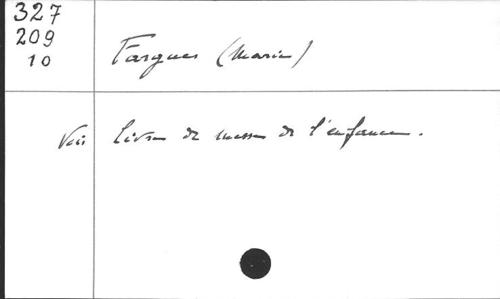 327
209
10
Fargues (Marie)
Voir Livre de messe de l'enfance.